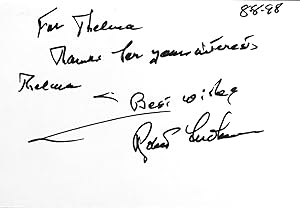 8-8-98
For Thelma
Thanks for your interest
Thelma
Best wishes
Robert